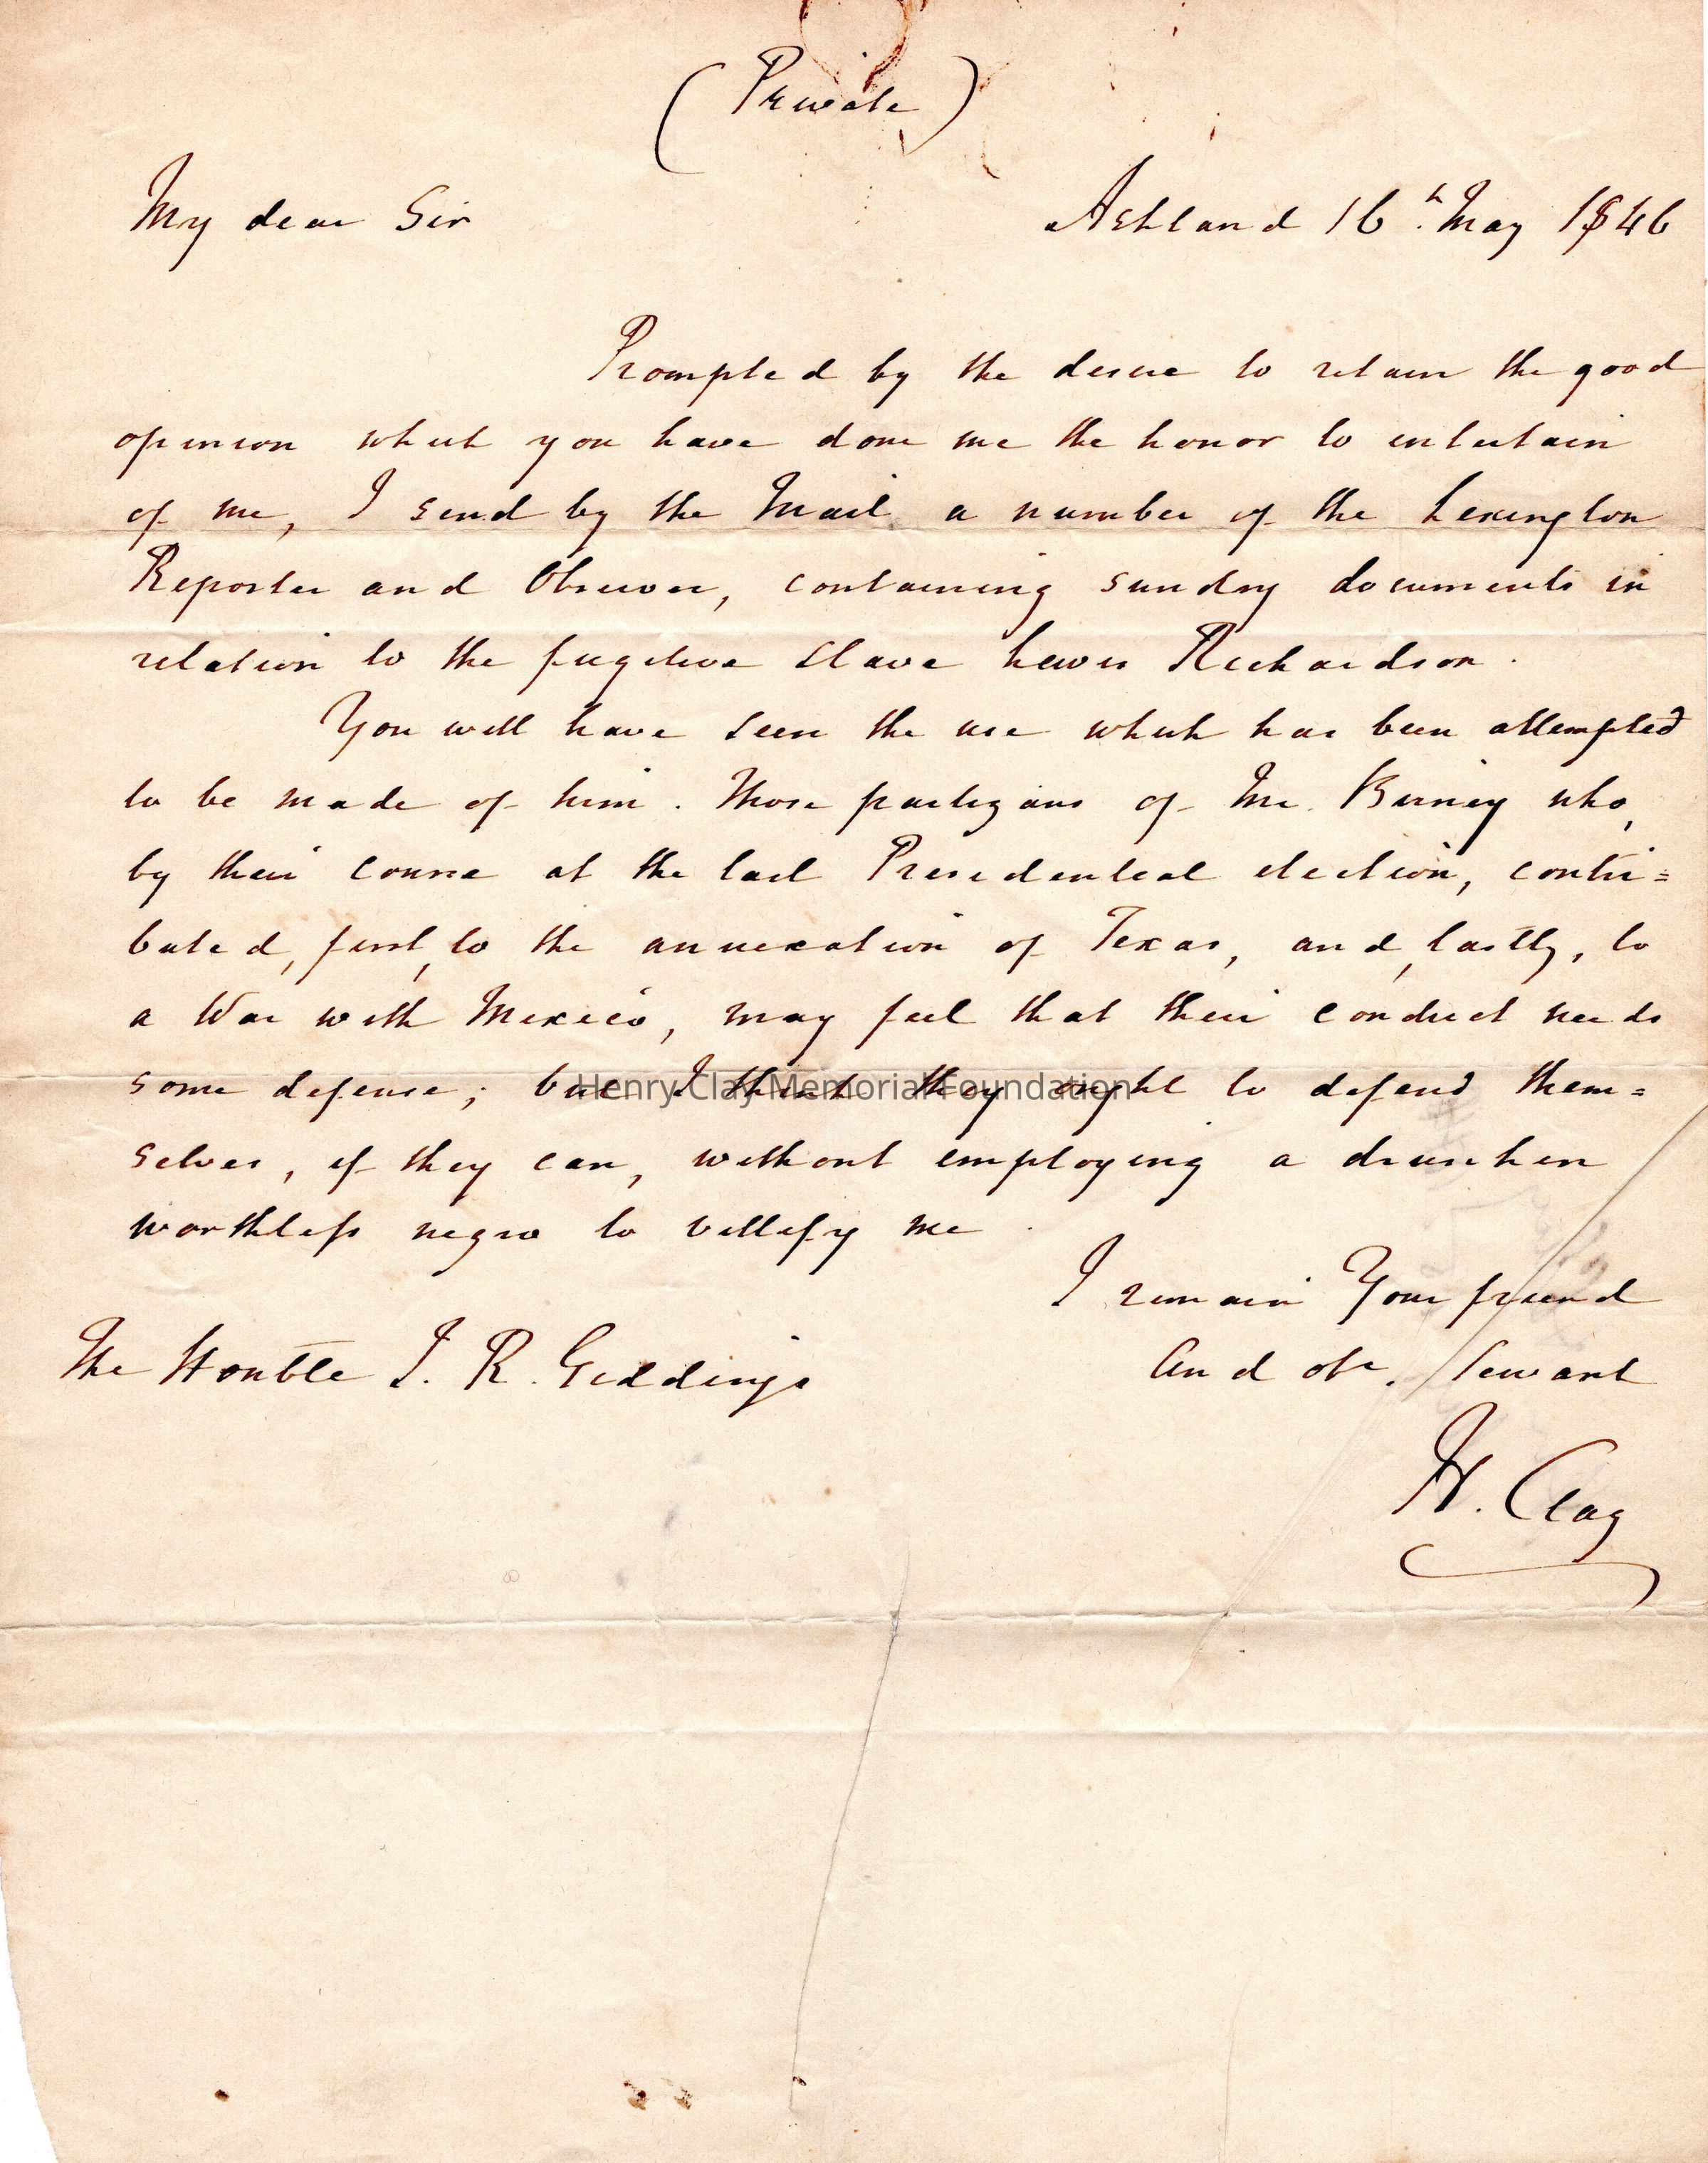 (Private)
My dear Sir
Ashland 16h. May 1846
Prompted by the desire to retain the good
opinion which you have done me the honor to entertain
of me, I send by the Mail a number of the Lexington
Reporter and Observer, containing sundry documents in
relation to the fugitive slave Lewis Richardson.
You will have seen the use which has been attempted
to be made of him. Those partizans of Mr. Birney who,
by their course at the last Presidential election, contri=
buted, first, to the annexation of Texas, and, lastly, to
a War with Mexico, may feel that their conduct needs
some defense; but I think they ought to defend them=
selves, if they can, without employing a drunken
worthless negro to villify me.
Henry Clay Memorial Foundation
I remain Your friend
and obt. Servant
The Honble J. R. Giddings
H. Clay